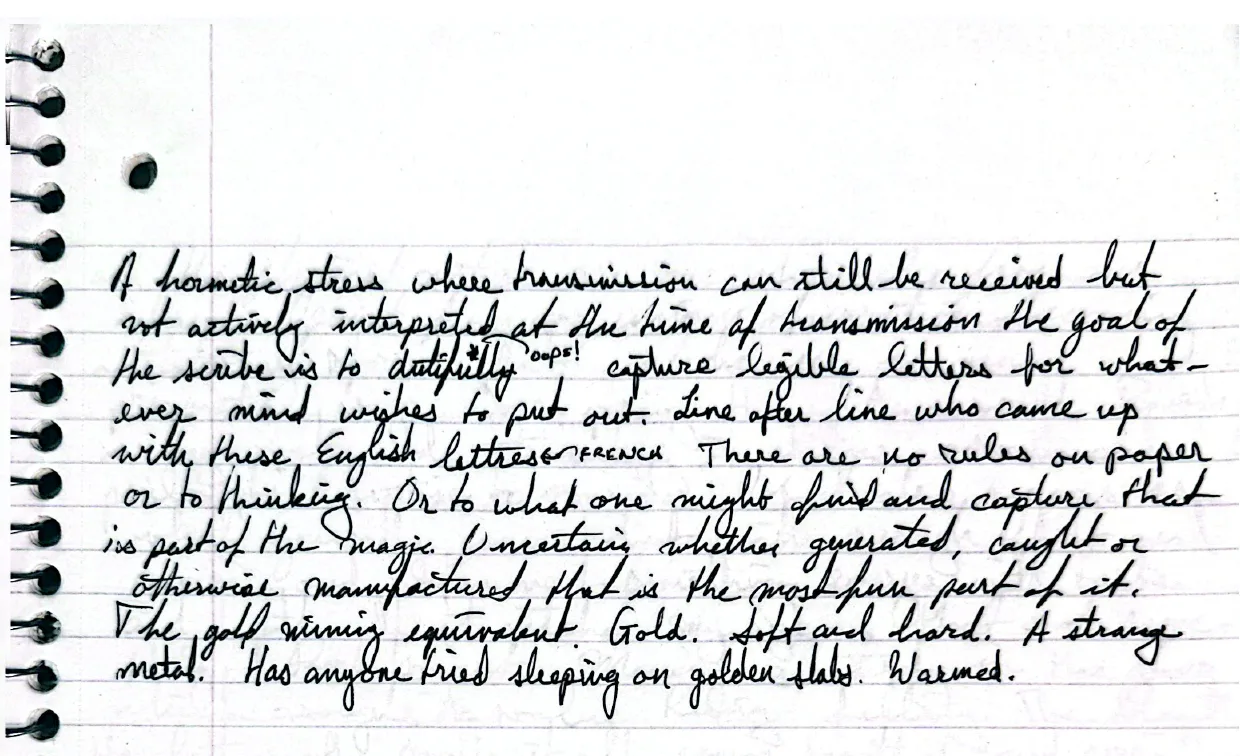 A hormetic stress where transmission can still be received but
not actively interpreted at the time of transmission the goal of
the scribe is to dutifully * oops! capture legible letters for what-
ever mind wishes to put out. Line after line who came up
with these English lettres ← FRENCH There are no rules on paper
or to thinking. Or to what one might find and capture that
is part of the magic. Uncertain whether generated, caught or
otherwise manufactured that is the most fun part of it.
The gold mining equivalent. Gold. Soft and hard. A strange
metal. Has anyone tried sleeping on golden slabs. Warmed.